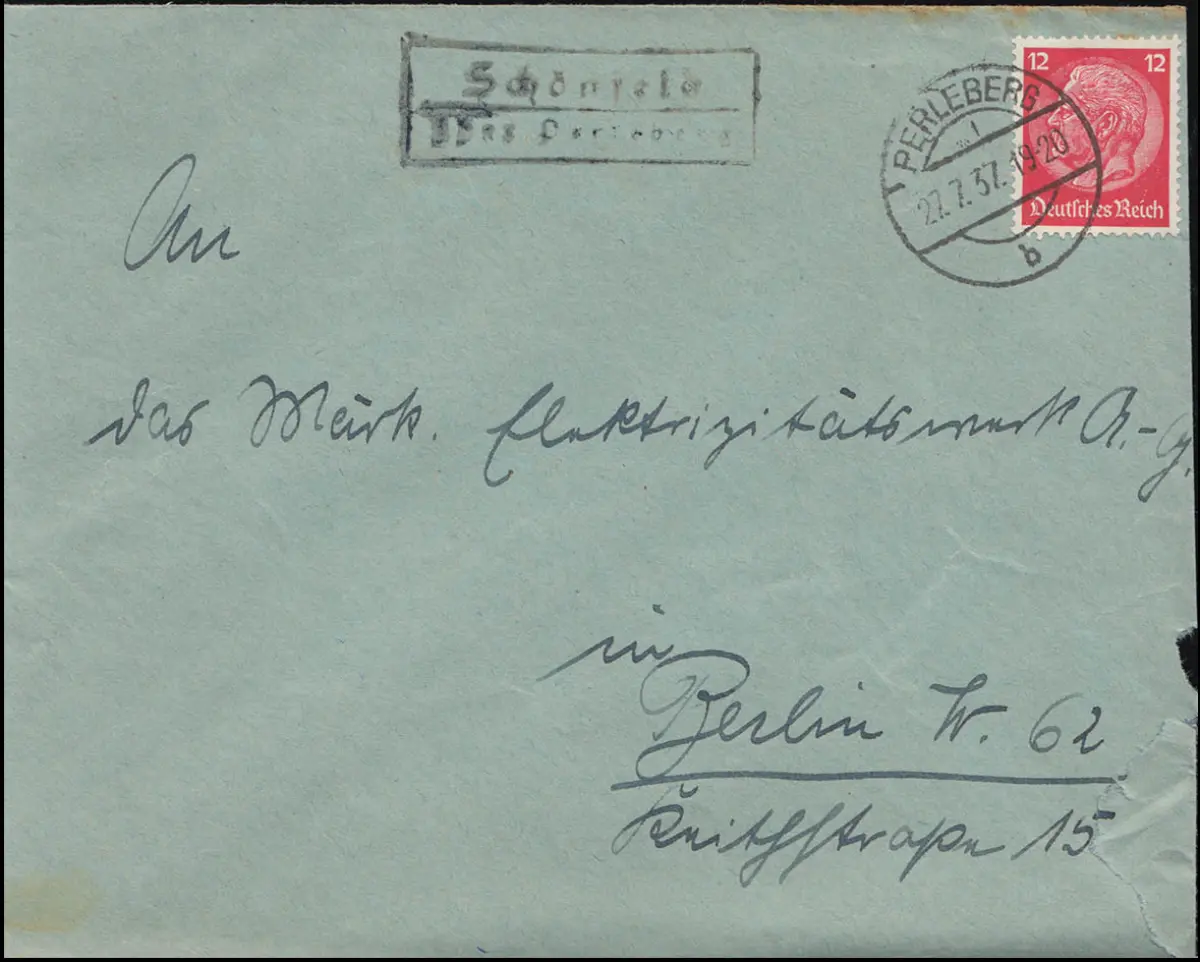 Schönfeld
über Perleberg
12 12
Deutsches Reich
PERLEBERG
27.7.37.19-20
b
An
das Märk. Elektrizitätswerk A.-G.
in
Berlin W. 62
Keithstraße 15